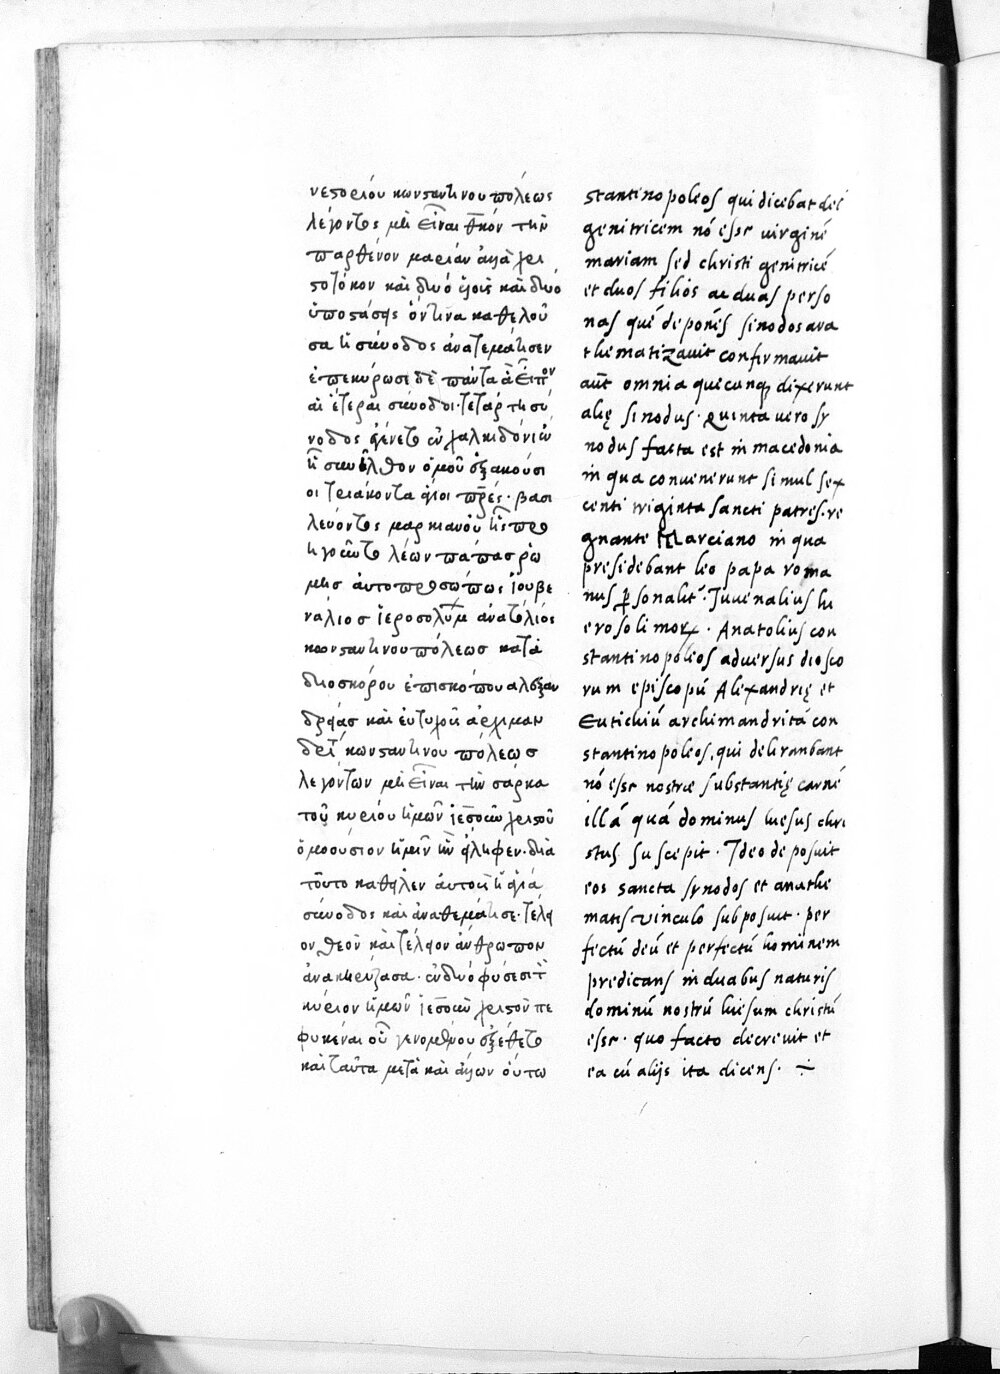 νεστορίου κωνσταντινου πόλεως
λέγοντος μὴ εἶναι θκόν τὴν
παρθένον μαρίαν ἀλλὰ χρι
στοτόκον καὶ δυό υἱοῖς καὶ δυό
ὑποστάσεις ὅντινα καθελοῦ
σα ἡ σύνοδος ἀνατεμάτισεν
ἐπεκύρωσε δὲ πάντα ἃ εἶπον
αἱ ἕτεραι σύνοδοι· τετάρτη σύ
νοδος ἐγένετο ἐν χαλκιδόνι ἐν
ἧ συνῆλθον ὁμοῦ ἑξακόσι
οι τριάκοντα ἅγιοι πρ̅ές· βασι
λεύοντος μαρκιανού ἧς προ
ηγοῦντο λέων πάπας ῥώ
μης αὐτοπροσώπως ἰουβε
νάλιος ἱεροσολύμ ἀνατόλιος
κωνσαντινουπόλεως κατὰ
διοσκόρου ἐπισκόπου αλεξαν
δρείας καὶ ἐυτυχοῦ ἀρχιμαν
δρίτ κωνσαντινου πόλεως
λεγόντων μὴ εἶναι τὴν σάρκα
τοῦ κυρίου ἡμῶν ἰησοῦ χριστοῦ
ὁμοούσιον ἡμῖν ἣν εἴληφεν· διὰ
τοῦτο καθεῖλεν ἀυτοὺς ἡ ἁγία
σύνοδος καὶ ἀναθεμάτισε· τέλει
ον θεὸν καὶ τέλειον ἄνθρωπον
ἀνακηρύξασα· ἐν δυό φύσεσι τὸν
κύριον ἡμῶν ἰησοῦν χριστὸν πε
φυκέναι οὗ γενομένου ἐξέθετο
καὶ ταῦτα μετὰ καὶ ἄλλων ὅυτω
stantinopoleos qui dicebat dei
genitricem nó esse uirginé
mariam sed christi genitricé
et duos filios ac duas perso
nas qué deponés sinodos ana
thematizavit confirmavit
aut̃ omnia quecunq; dixerunt
alię sinodus· Quinta uero sy
nodus facta est in macedonia
in qua convenerunt simul sex
centi triginta sancti patres· re
gnante Marciano in qua
presidebant leo papa roma
nus ꝑsonalit̃· Juvenalius hi
erosolimoꝝ· Anatolius con
stantinopoleos adversus diosco
rum episcopú Alexandrię et
Eutichiú archimandritá con
stantinopoleos, qui deliranbant
nó esse nostrae substantię carné
illá quá dominus hiesus chri
stus suscepit· Ideo deposuit
eos sancta synodos et anathe
matis vinculo subposuit· per
fectú deú et perfectú hominem
predicans in duabus naturis
dominú nostrú hiesum christú
esse· quo facto decrevit et
ea cú alijs ita dicens· ÷